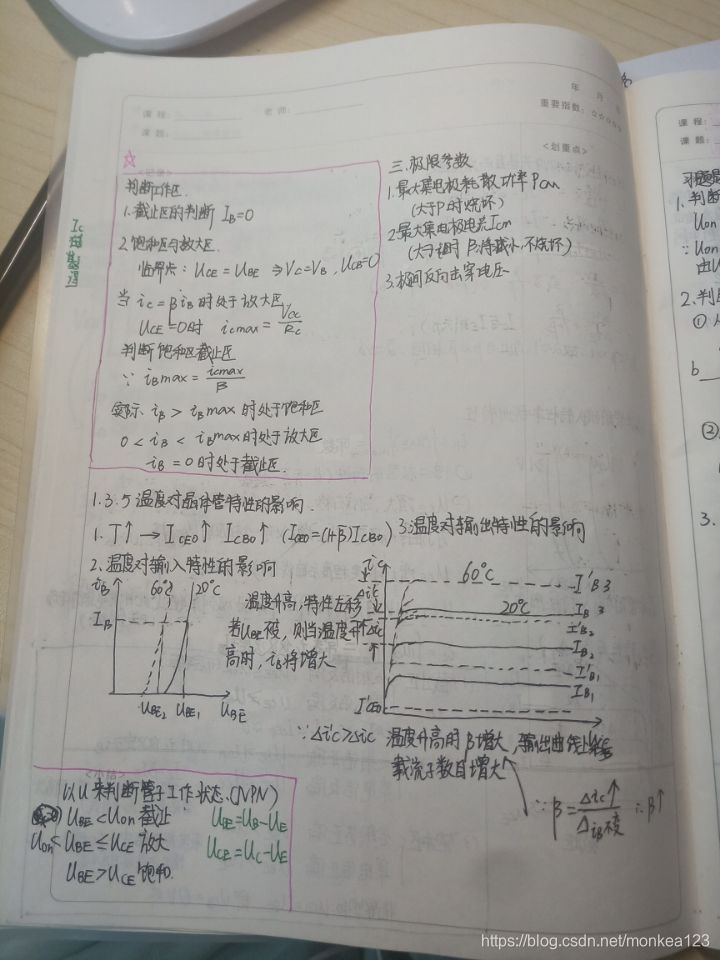 年 月
课程:
老师:
课题:
重要指数: ☆☆☆☆☆
<划重点>
判断工作区.
1.截止区的判断 I_B=0
2.饱和区与放大区.
临界点: U_CE = U_BE ⇒ V_C=V_B, U_CB=0
当 i_C = β i_B 时处于放大区
U_CE=0时 i_cmax = V_CC/R_C
判断饱和区截止区
∵ i_Bmax = i_cmax/β
实际 i_B > i_Bmax 时处于饱和区
0 < i_B < i_Bmax时处于放大区
i_B = 0时处于截止区.
三.极限参数
1.最大集电极耗散功率 P_CM
(大于P时烧坏)
2.最大集电极电流 I_CM
3.极间反向击穿电压
1.3.5 温度对晶体管特性的影响.
1. T↑ → I_CEO↑ I_CBO↑ (I_CEO=(1+β̄)I_CBO)
2.温度对输入特性的影响
i_B
60℃ 20℃
I_B
U_BE2 U_BE1 U_BE
温度升高,特性左移
若U_BE不变,则当温度升
高时, i_B将增大
3.温度对输出特性的影响
i_C
60℃
I'_B3
Δi'c
20℃
I_B3
I'_B2
Δic
I_B2
I'_B1
I_B1
I'_CEO
∵ Δi'c>Δic 温度升高时 β增大, 输出曲线上移
载流子数目增大
∵ β = Δic↑/Δi_B不变 ∴ β↑
<小结>
以U来判断管子工作状态.(NPN)
U_BE<U_on 截止
U_on<U_BE≤U_CE 放大
U_BE>U_CE 饱和.
U_BE=U_B-U_E
U_CE=U_C-U_E
课程:
课题:
1.判断
U_on
2.判
①
b
②
3.
https://blog.csdn.net/monkea123